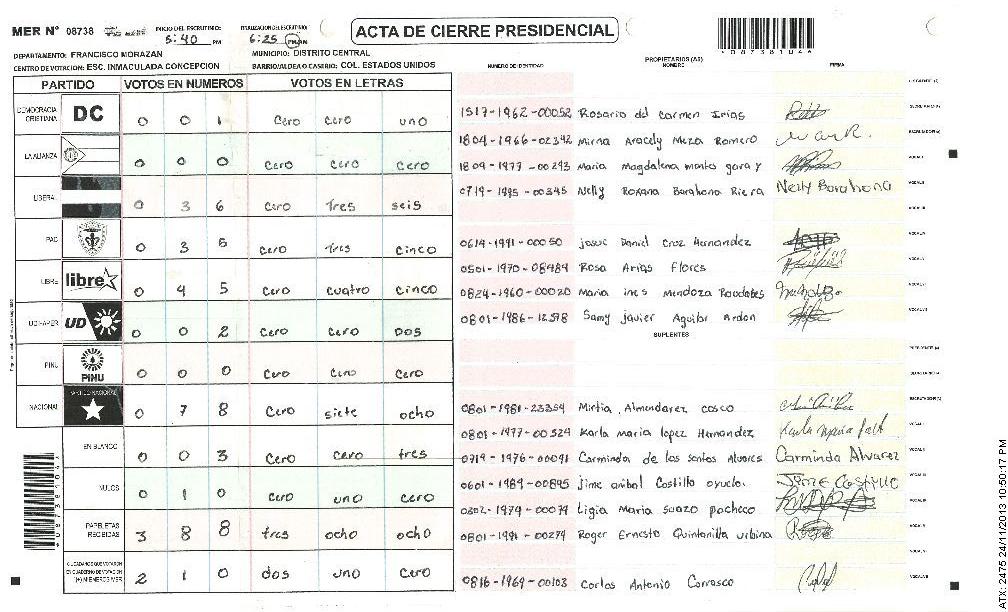 MER Nº 08738 INICIO DEL ESCRUTINIO: 5:40 PM FINALIZACION DEL ESCRUTINIO: 6:25 PM
ACTA DE CIERRE PRESIDENCIAL
DEPARTAMENTO: FRANCISCO MORAZAN MUNICIPIO: DISTRITO CENTRAL
CENTRO DE VOTACION: ESC. INMACULADA CONCEPCION BARRIO/ALDEA O CASERIO: COL. ESTADOS UNIDOS
PARTIDO VOTOS EN NUMEROS VOTOS EN LETRAS
DEMOCRACIA CRISTIANA DC 0 0 1 Cero cero uno
LA ALIANZA 0 0 0 Cero Cero Cero
LIBERAL 0 3 6 Cero Tres seis
PAC 0 3 5 Cero Tres cinco
LIBRE libre 0 4 5 Cero cuatro cinco
UD FAPER UD 0 0 2 Cero Cero DOS
PINU PINU 0 0 0 Cero Cero Cero
NACIONAL PARTIDO NACIONAL 0 7 8 Cero siete ocho
EN BLANCO 0 0 3 Cero cero tres
NULOS 0 1 0 Cero uno cero
PAPELETAS RECIBIDAS 3 8 8 tres ocho ocho
CIUDADANOS QUE VOTARON EN CUADERNO DE VOTACION (+) MIEMBROS MER 2 1 0 dos uno Cero
NUMERO DE IDENTIDAD PROPIETARIOS (AS) NOMBRE FIRMA
1517-1962-00052 Rosario del Carmen Irias
1804-1966-02342 Mirna Aracely Meza Romero
1804-1977-00293 Maria Magdalena
0719-1995-00345 Nelly Roxana Barahona Nelly Barahona
0614-1991-00050 Josue Daniel Cruz Hernandez
0501-1970-08484 Rosa Arias Flores
0824-1960-00020 Maria ines Mendoza
0801-1986-12578 Samy javier Aguilar Ardon
SUPLENTES
0801-1981-23354 Almendarez
0801-1977-00524 Karla maria lopez Hernandez
0719-1976-00091 Carminda de los santos Alvares Carminda Alvarez
0601-1989-00895 Castillo
0802-1979-00079 Ligia Maria suazo pacheco
0801-1991-00279 Roger Ernesto Quintanilla urbina
0816-1969-00103 Carlos Antonio Carrasco
ATX: 2475 24/11/2013 10:50:17 PM